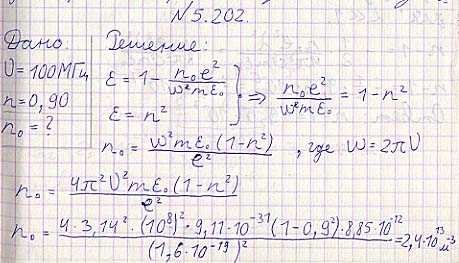 №5.202.
Дано: Решение:
υ = 100 МГц
n = 0,90
n₀ = ?
ε = 1 - n₀e²/ω²mε₀
ε = n²
} ⇒ n₀e²/ω²mε₀ = 1 - n²
n₀ = ω²mε₀(1-n²)/e² , где ω = 2πυ
n₀ = 4π²υ²mε₀(1-n²)/e²
n₀ = 4·3,14²·(10⁸)²·9,11·10⁻³¹(1-0,9²)·8,85·10⁻¹²/(1,6·10⁻¹⁹)² = 2,4·10¹³ м⁻³